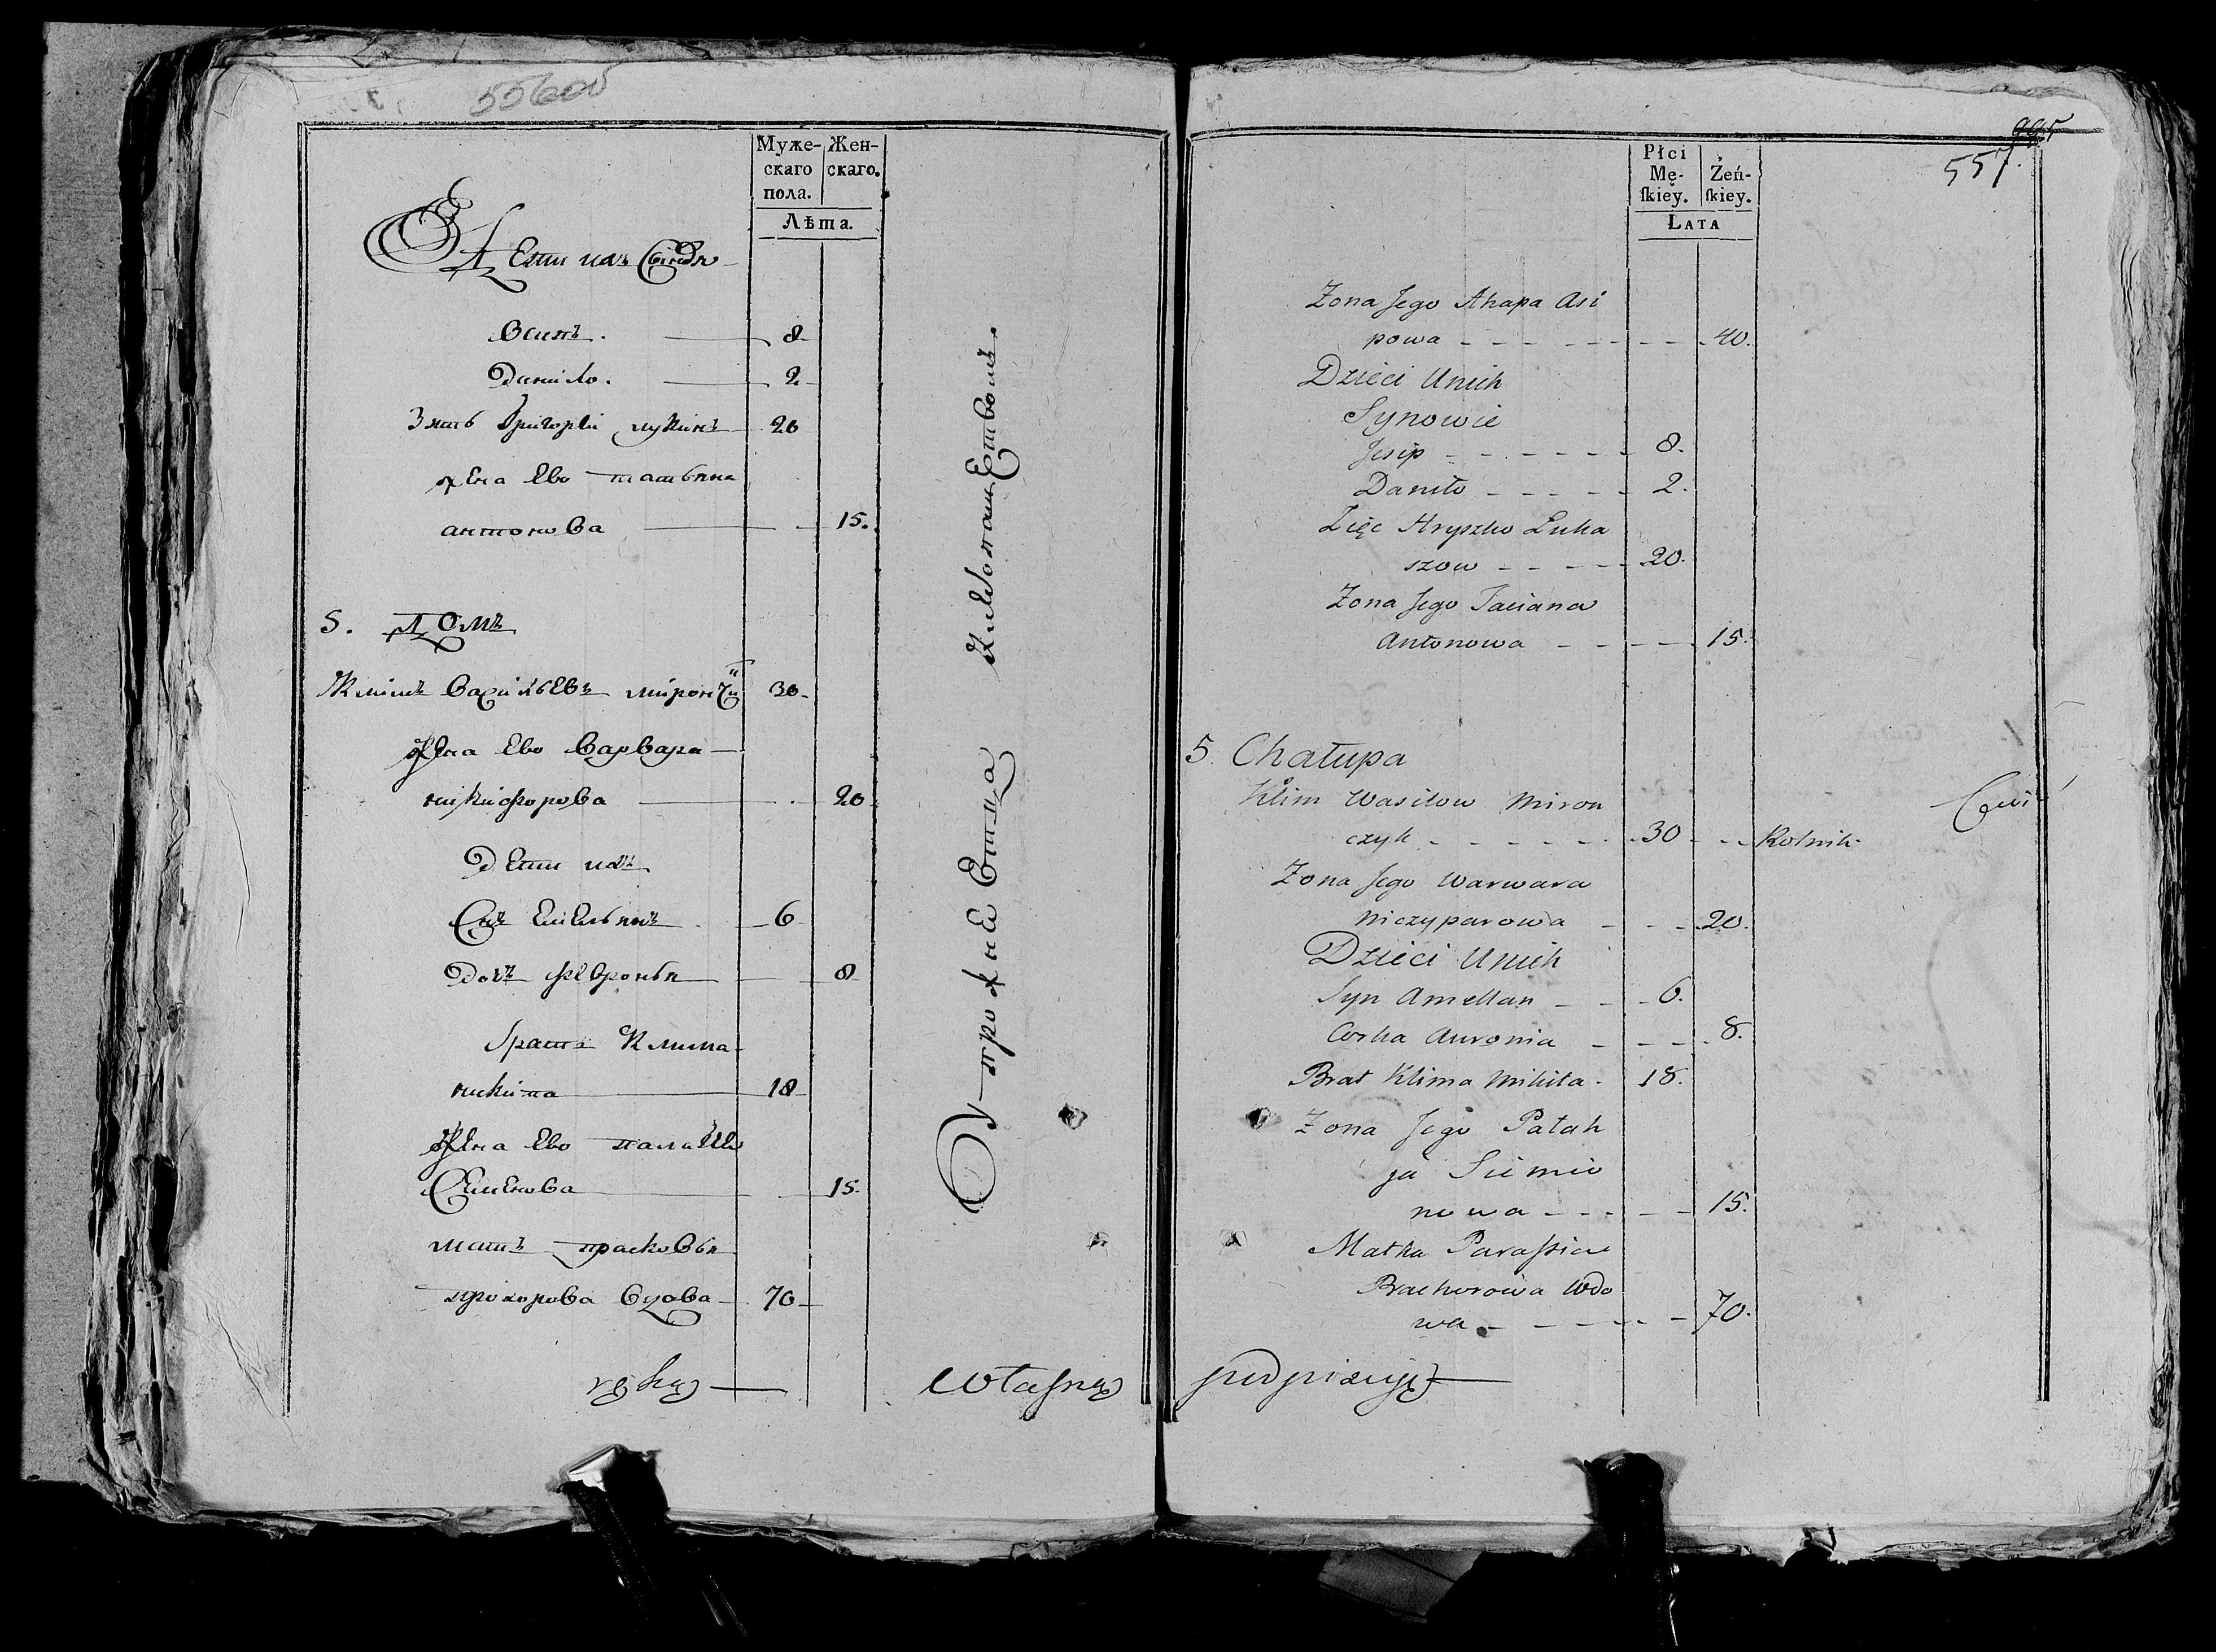 556об
Муже-
скаго
пола.
Жен-
скаго.
Лѣта.
Дети ихъ Сыновя
Осипъ. 8
Данило. 2
Зять Григорей лукинъ 20
жена Ево татьяна
антонова 15.
5. ДОМЪ
Климъ Васильевъ мирончи 30
Жена Ево Варвара
никифорова 20
Дети ихъ
Снъ Емельянъ 6
Дочъ февронья 8
братъ Клима
никита 18
Жена Ево палагея
Семенова 15.
мать прасковья
прохорова вдова 70
ręką
własną
557.
Płci
Mę-
ſkiey.
Żeń-
ſkiey.
LATA
Żona Jego Ahapa Asi
powa 40.
Dzieci Unich
Synowie
Jesip 8.
Daniło 2.
Zięc Hryszko Łuka
szow 20.
Żona Jego Taciana
Antonowa 15.
5. Chałupa
Klim Wasilow Miron
czyk 30 Rolnik
Żona Jego Warwara
Niczyparowa 20.
Dzieci Unich
Syn Amellan 6.
Corka Auronia 8.
Brat Klima Mikita. 18.
Żona Jego Pałah
ja Siemio
nowa 15.
Matka Paraſsia
Prachorowa Wdo
wa 70.
podpisuję